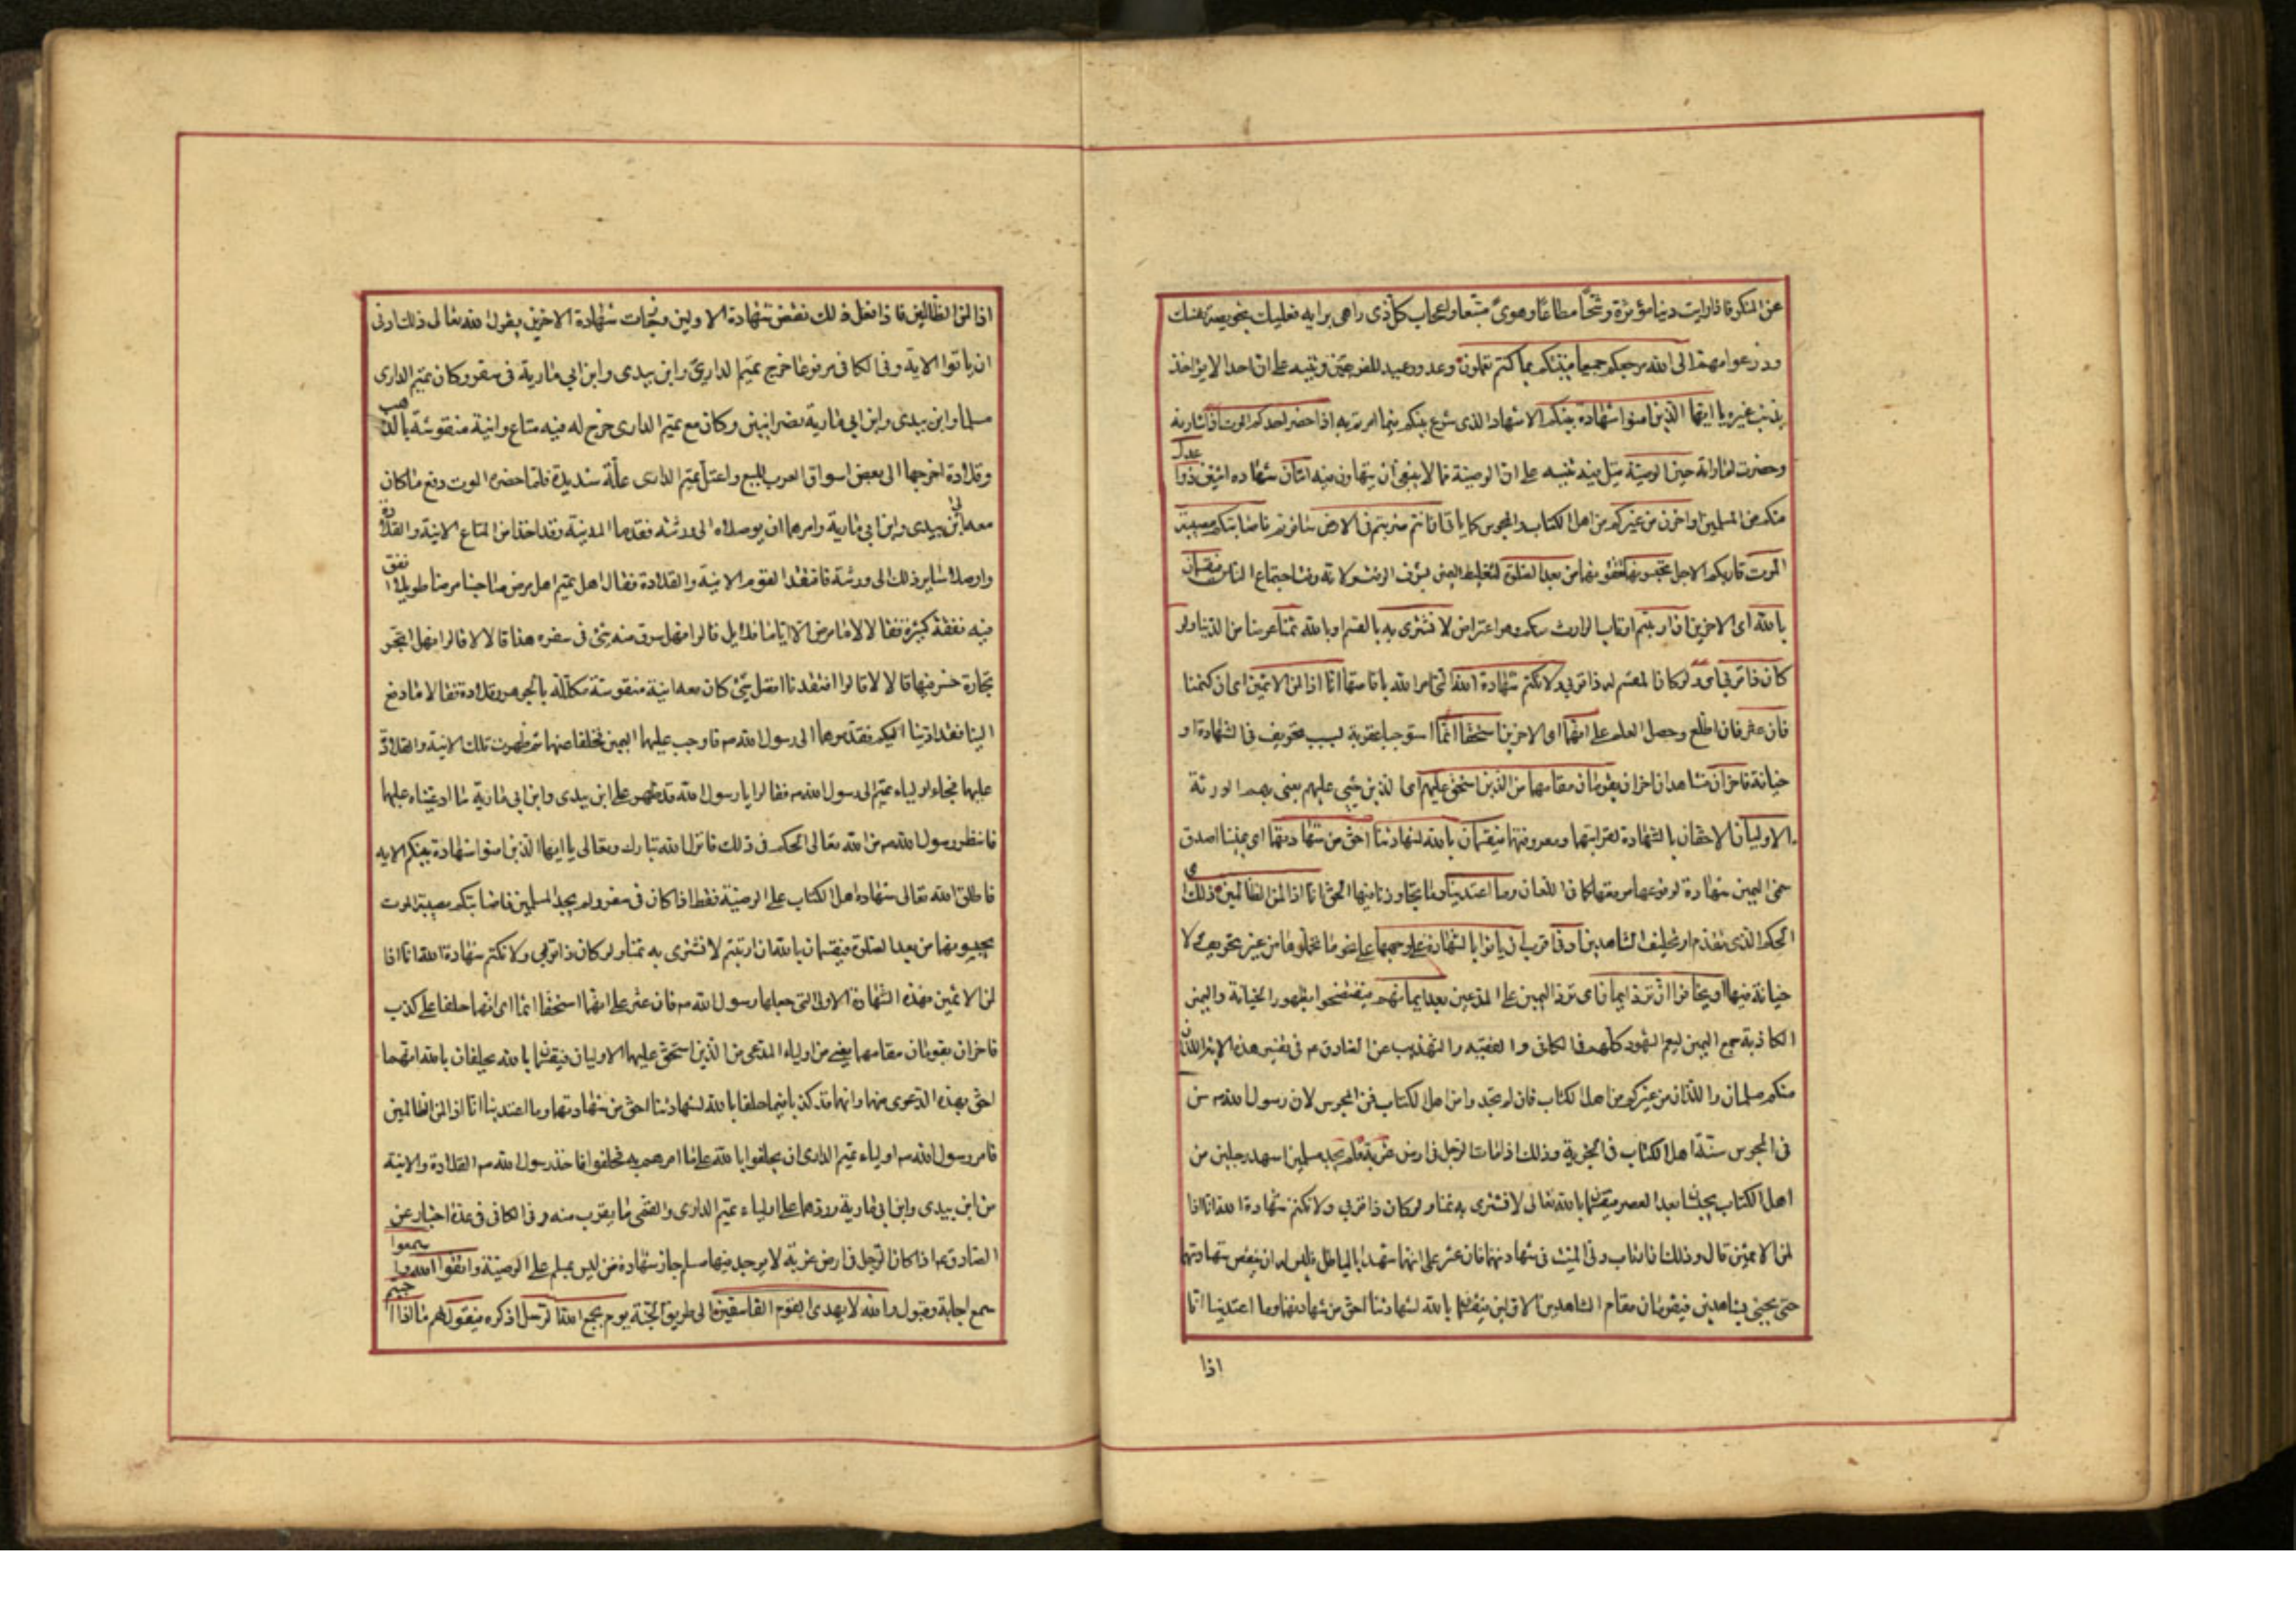 عن المنكر فاذا رايت دنيا مؤثرة و شحّا مطاعًا و هوىً متّبعا و اعجاب كلّ ذى راى برايه فعليك بخويصة نفسك
و ذر عوامهم الى الله مرجعكم جميعا فينبّئكم بما كنتم تعملون وعد و وعيد للفريقين و تنبيه على ان احدا لا يؤاخذ
بذنب غيره يا ايّها الّذين امنوا شهادة بينكم الاشهاد الذى شرع بينكم فيما امرتم به اذا حضر احدكم الموت اذا شارفه
و حضرت اماراته حين الوصيّة بدل منه تنبيه على انّ الوصيّة ممّا لا ينبغى ان يتهاون فيه اثنان شهادة اثنين ذوا عدل
منكم من المسلمين او اخران من غيركم من اهل الكتاب و المجوس كما ياتى ان انتم ضربتم فى الارض سافرتم فاصابتكم مصيبة
الموت قاربكم الاجل تحبسونهما تقفونهما من بعد الصّلوة لتغليظ اليمين بشرف الوقت و لانّه وقت اجتماع النّاس فيقسمان
بالله اى الاخران ان ارتبتم ارتاب الوارث منكم و هو اعتراض لا نشترى به بالقسم او بالله ثمنا عوضا من الدّنيا و لو
كان ذا قربى و لو كان المقسم له ذا قربى و لا نكتم شهادة الله الّتى امر الله باقامتها انّا اذا لمن الاثمين اى ان كتمنا
فان عثر فان اطّلع و حصل العلم على انّهما اى الاخرين استحقّا اثمًا استوجبا عقوبة بسبب تحريف فى الشهادة او
خيانة فاخران فشاهدان اخران يقومان مقامهما من الّذين استحقّ عليهم اى الّذين جنى عليهم يعنى بهم الورثة
الاوليان الاحقّان بالشهادة لقرابتهما و معرفتهما فيقسمان بالله لشهادتنا احقّ من شهادتهما اى يميننا اصدق
سمّى اليمين شهادة لوقوعها موقعها كما فى اللّعان و ما اعتدينا و ما تجاوزنا فيها الحقّ انّا اذا لمن الظّالمين ذلك
الحكم الّذى تقدّم او تحليف الشاهدين ادنى اقرب ان ياتوا بالشّهادة على وجهها على نحو ما تحمّلوها من غير تحريف و لا
خيانة فيها او يخافوا ان تردّ ايمان اى تردّ اليمين على المدّعين بعد ايمانهم فيفتضحوا بظهور الخيانة و اليمين
الكاذبة جمع اليمين ليعم الشهود كلّهم فى الكافى و الفقيه و التهذيب عن الصّادق ع فى تفسير هذه الاية اللّذان
منكم مسلمان و اللّذان من غيركم من اهل الكتاب فان لم تجدوا من اهل الكتاب فمن المجوس لان رسول الله ص سنّ
فى المجوس سنّة اهل الكتاب فى الجزية و ذلك اذا مات الرّجل فى ارض غربة فلم يجد مسلمين اشهد رجلين من
اهل الكتاب يحبسان بعد العصر فيقسمان بالله تعالى لا نشترى به ثمنا و لو كان ذا قربى و لا نكتم شهادة الله انّا اذا
لمن الاثمين قال و ذلك ان ارتاب ولىّ الميّت فى شهادتهما فان عثر على انّهما شهدا بالباطل فليس له ان ينقض شهادتهما
حتّى يجيئ بشاهدين فيقومان مقام الشاهدين الاوّلين فيقسمان بالله لشهادتنا احقّ من شهادتهما و ما اعتدينا انّا
اذا
اذا لمن الظّالمين فاذا فعل ذلك نقض شهادة الاولين و جازت شهادة الاخرين يقول الله تعالى ذلك ادنى
ان ياتوا الاية و فى الكافى مرفوعا خرج تميم الدارىّ و ابن بيدى و ابن ابى مارية فى سفر و كان تميم الدارى
مسلما و ابن بيدى و ابن ابى مارية نصرانيين و كان مع تميم الدارى خرج له فيه متاع و انية منقوشة بالذهب
و قلادة اخرجها الى بعض اسواق العرب للبيع و اعتلّ تميم الدارى علّة شديدة فلمّا حضره الموت دفع ما كان
معه الى ابن بيدى و ابن ابى مارية و امرهما ان يوصلاه الى ورثته فقدما المدينة و قد اخذا من المتاع الانية و القلادة
و اوصلا ساير ذلك الى ورثته فافتقد القوم الانية و القلادة فقال اهل تميم هل مرض صاحبنا مرضا طويلا انفق
فيه نفقة كثيرة فقالا لا ما مرض الّا ايّاما قلائل قالوا فهل سرق منه شئ فى سفره هذا قالا لا قالوا فهل اتّجر
تجارة خسر فيها قالا لا قالوا افتقدنا افضل شئ كان معه انية منقوشة مكلّلة بالجوهر و قلادة فقالا ما دفع
الينا فقد ادّيناه اليكم فقدّموهما الى رسول الله ص فاوجب عليهما اليمين فحلفا عنهما ثم ظهرت تلك الانية و القلادة
عليهما فجاء اولياء تميم الى رسول الله ص فقالوا يا رسول الله قد ظهر على ابن بيدى و ابن ابى مارية ما ادّعيناه عليهما
فانتظر رسول الله ص من الله تعالى الحكم فى ذلك فانزل الله تبارك و تعالى يا ايها الّذين امنوا شهادة بينكم الاية
فاطلق الله تعالى شهادة اهل الكتاب على الوصيّة فقط اذا كان فى سفر و لم يجد المسلمين فاصابتكم مصيبة الموت
تحبسونهما من بعد الصّلوة فيقسمان بالله ان ارتبتم لا نشترى به ثمنا و لو كان ذا قربى و لا نكتم شهادة الله انّا اذا
لمن الاثمين فهذه الشّهادة الاولى الّتى جعلها رسول الله ص فان عثر على انّهما استحقّا اثما اى انّهما حلفا على كذب
فاخران يقومان مقامهما يعنى من اولياء المدّعى من الّذين استحقّ عليهم الاوليان فيقسمان بالله يحلفان بالله انّهما
احقّ بهذه الدّعوى منهما و انّهما قد كذبا فيما حلفا بالله لشهادتنا احقّ من شهادتهما و ما اعتدينا انّا اذا لمن الظالمين
فامر رسول الله ص اولياء تميم الدارى ان يحلفوا بالله على ما امرهم به فحلفوا فاخذ رسول الله ص القلادة و الانية
من ابن بيدى و ابن ابى مارية و ردّهما على اولياء تميم الدارى و القمّى ما يقرب منه و فى الكافى فى عدّة اخبار عن
الصّادق ع اذا كان الرّجل فى ارض غربة لا يوجد فيها مسلم جاز شهادة من ليس بمسلم على الوصيّة و اتّقوا الله و اسمعوا
سمع اجابة و قبول و الله لا يهدى القوم الفاسقين الى طريق الجنّة يوم يجمع الله الرّسل اذكره فيقول لهم ما ذا اجبتم